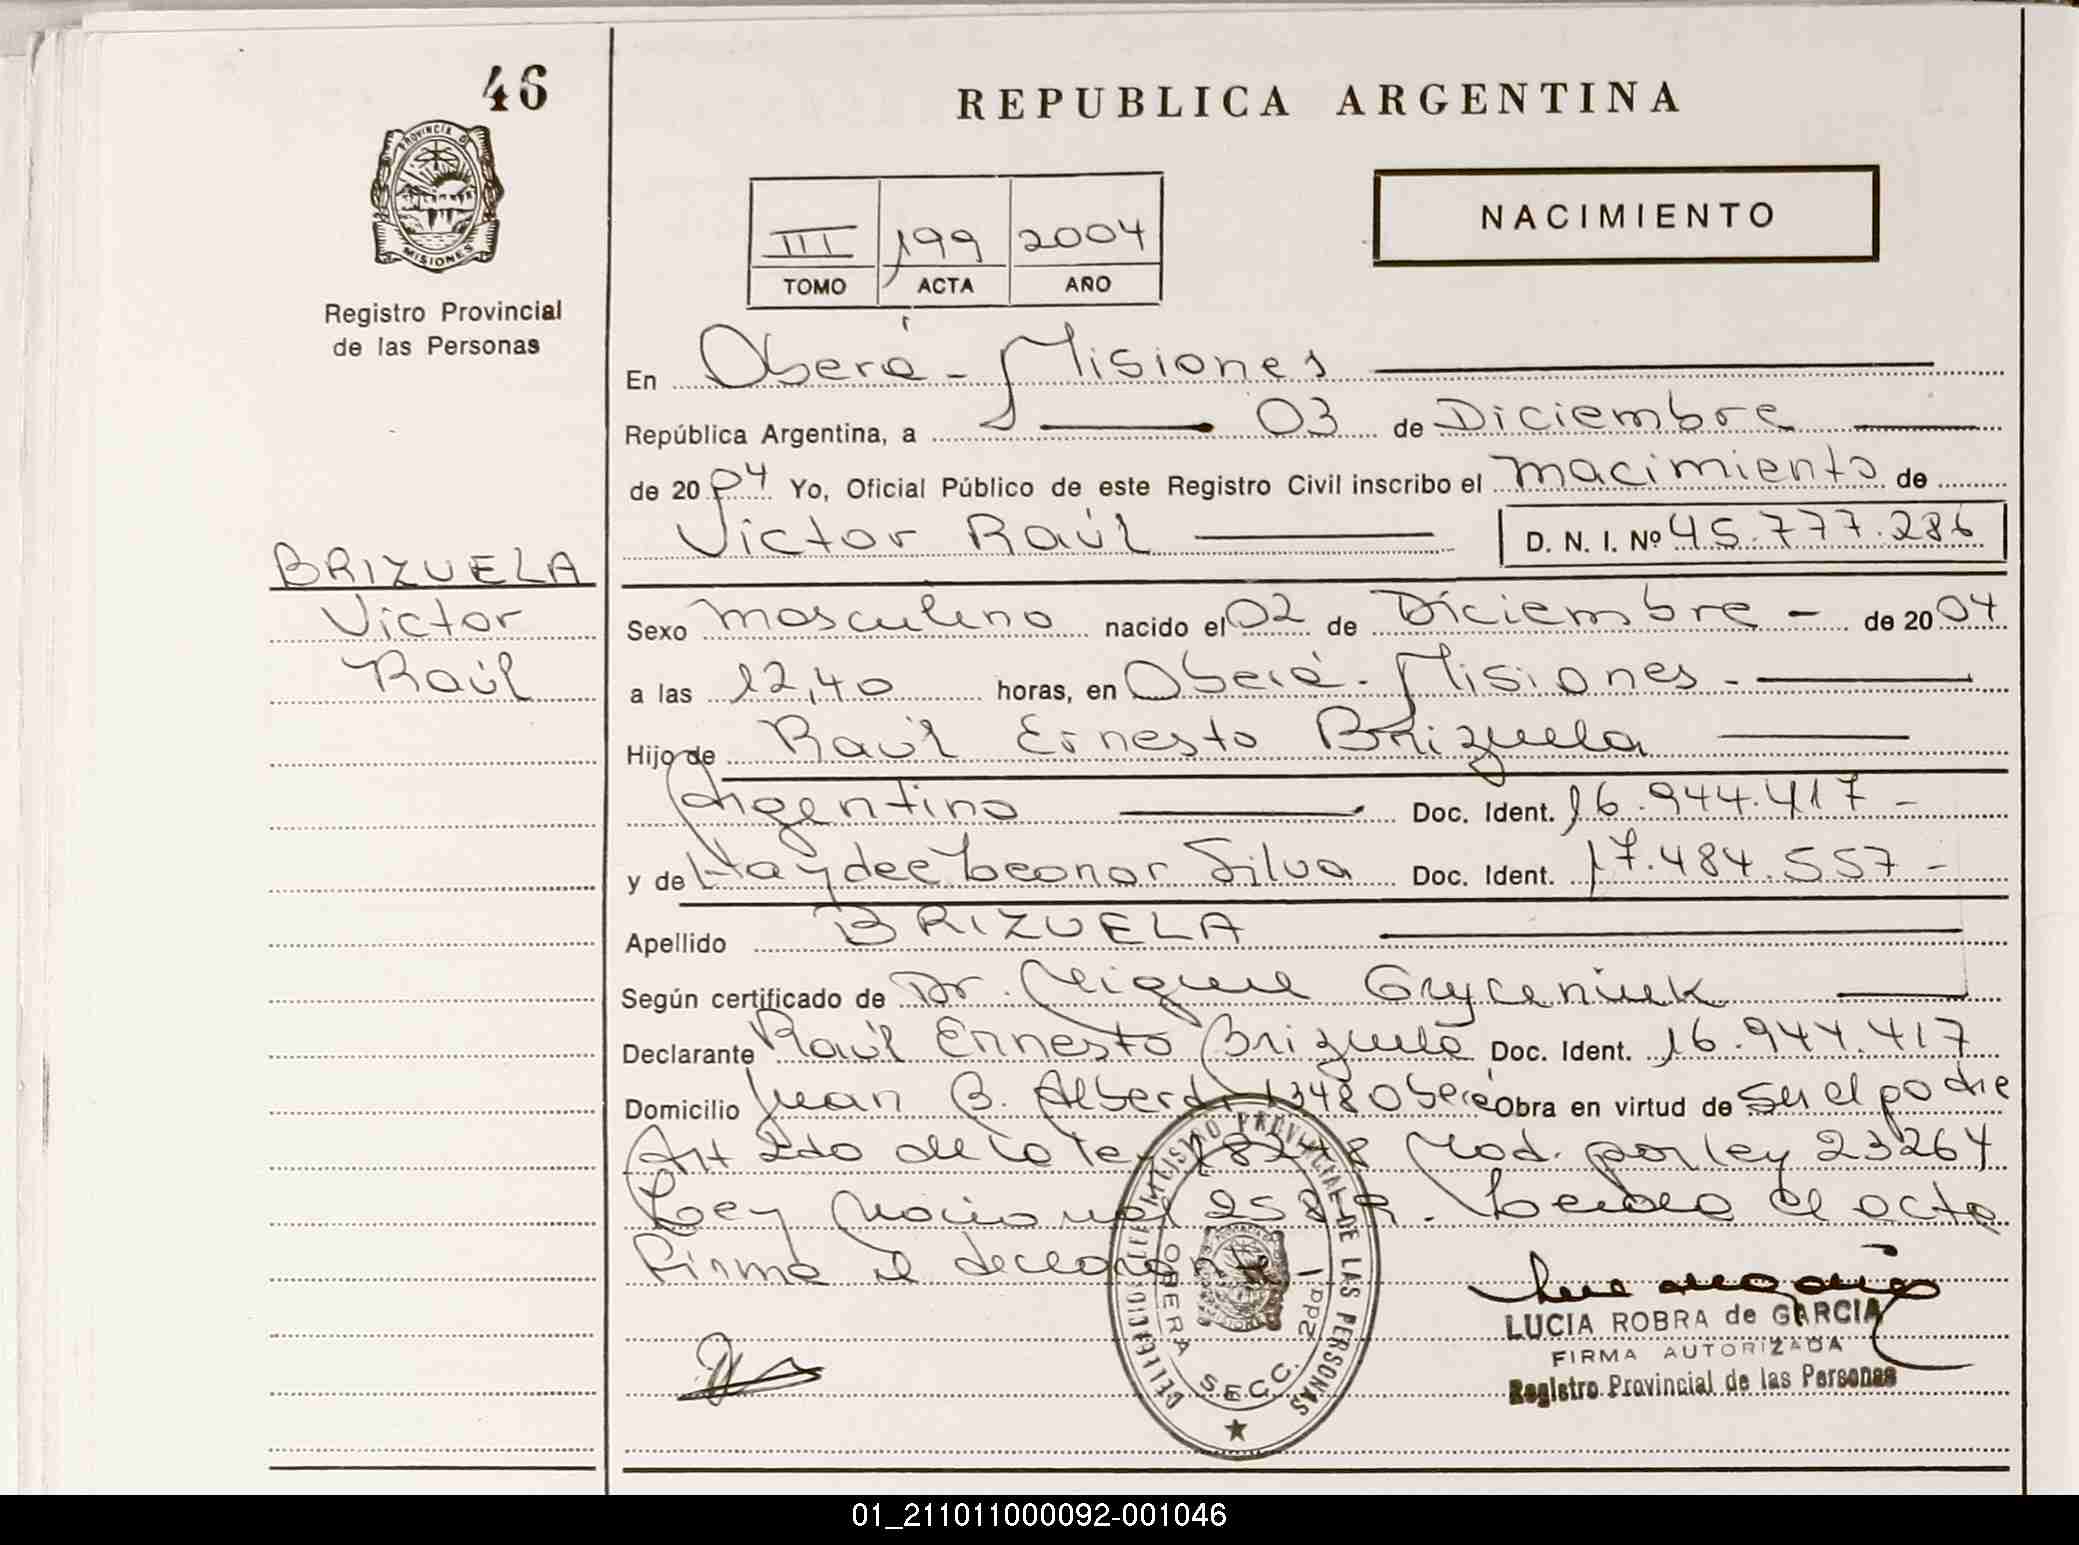 46
REPUBLICA ARGENTINA
PROVINCIA D
MISIONES
Registro Provincial
de las Personas
NACIMIENTO
III 199 2004
TOMO ACTA AÑO
En Oberá - Misiones
República Argentina, a 03 de Diciembre
de 2004 Yo, Oficial Público de este Registro Civil inscribo el nacimiento de
Victor Raúl D. N. I. Nº 45.777.286
BRIZUELA
Victor
Raúl
Sexo masculino nacido el 02 de Diciembre - de 2004
a las 12,40 horas, en Oberá - Misiones -
Hijo de Raúl Ernesto Brizuela
Argentino Doc. Ident. 16.944.417 -
y de Haydee Leonor Silva Doc. Ident. 17.484.557 -
Apellido BRIZUELA
Según certificado de Dr. Miguel
Declarante Raúl Ernesto Brizuela Doc. Ident. 16.944.417
Domicilio Juan B. Alberdi 1348 Oberá Obra en virtud de ser el padre
Art 2do de la ley 18248 Mod. por ley 23264
Ley Nacional Leida el acta
Firma el declarante
REGISTRO PROVINCIAL DE LAS PERSONAS
OBERA SECC. 2da
LUCIA ROBRA de GARCIA
FIRMA AUTORIZADA
Registro Provincial de las Personas
01_211011000092-001046